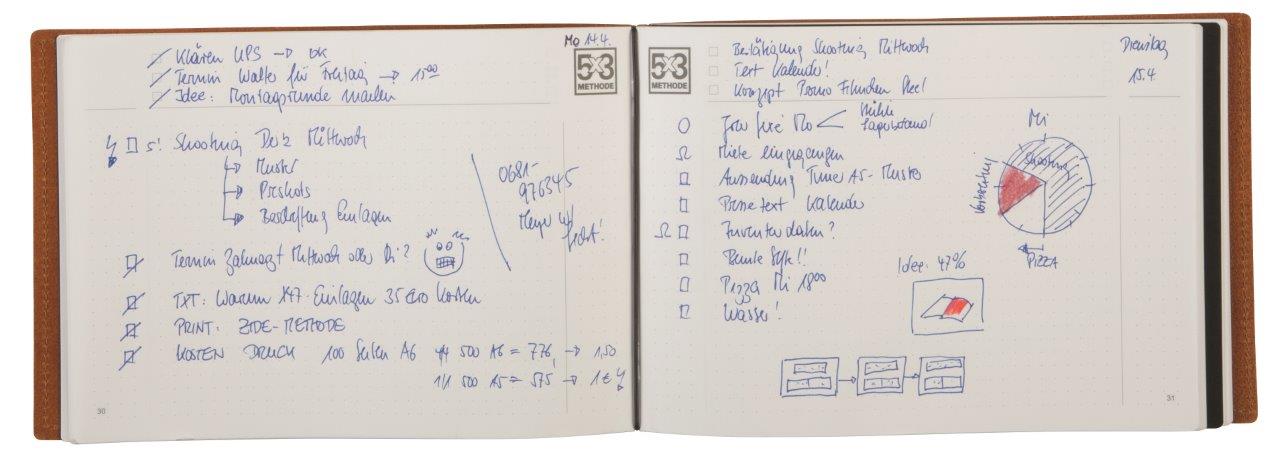 Mo 14.4.
Klären UPS → OK
Termin Walter für Freitag → 15⁰⁰
Idee: Montagsrunde mailen
5X3
METHODE
5! Shooting Mittwoch
Muster
Preshots
Beschaffung Einlagen
0681-
976345
Meyer
Termin Zahnarzt Mittwoch oder Di?
TXT: Warum X47-Einlagen 35 Euro kosten
PRINT: METHODE
KOSTEN DRUCK 100 Seiten A6 4/4 500 A6 = 776, → 1,50
1/1 500 A5 = 575 → 1 €
30
Dienstag
15.4.
Bestätigung Shooting Mittwoch
Text Kalender!
Konzept Promo
5X3
METHODE
Jour fixe Mo
Lagerbestand
Miete eingegangen
Aussendung Timer A5-Muster
Pressetext Kalender
Inventurdaten?
Pizza Mi 1800
Wasser!
Mi
Shooting
Vorbereitung
PIZZA
Idee: 47%
31